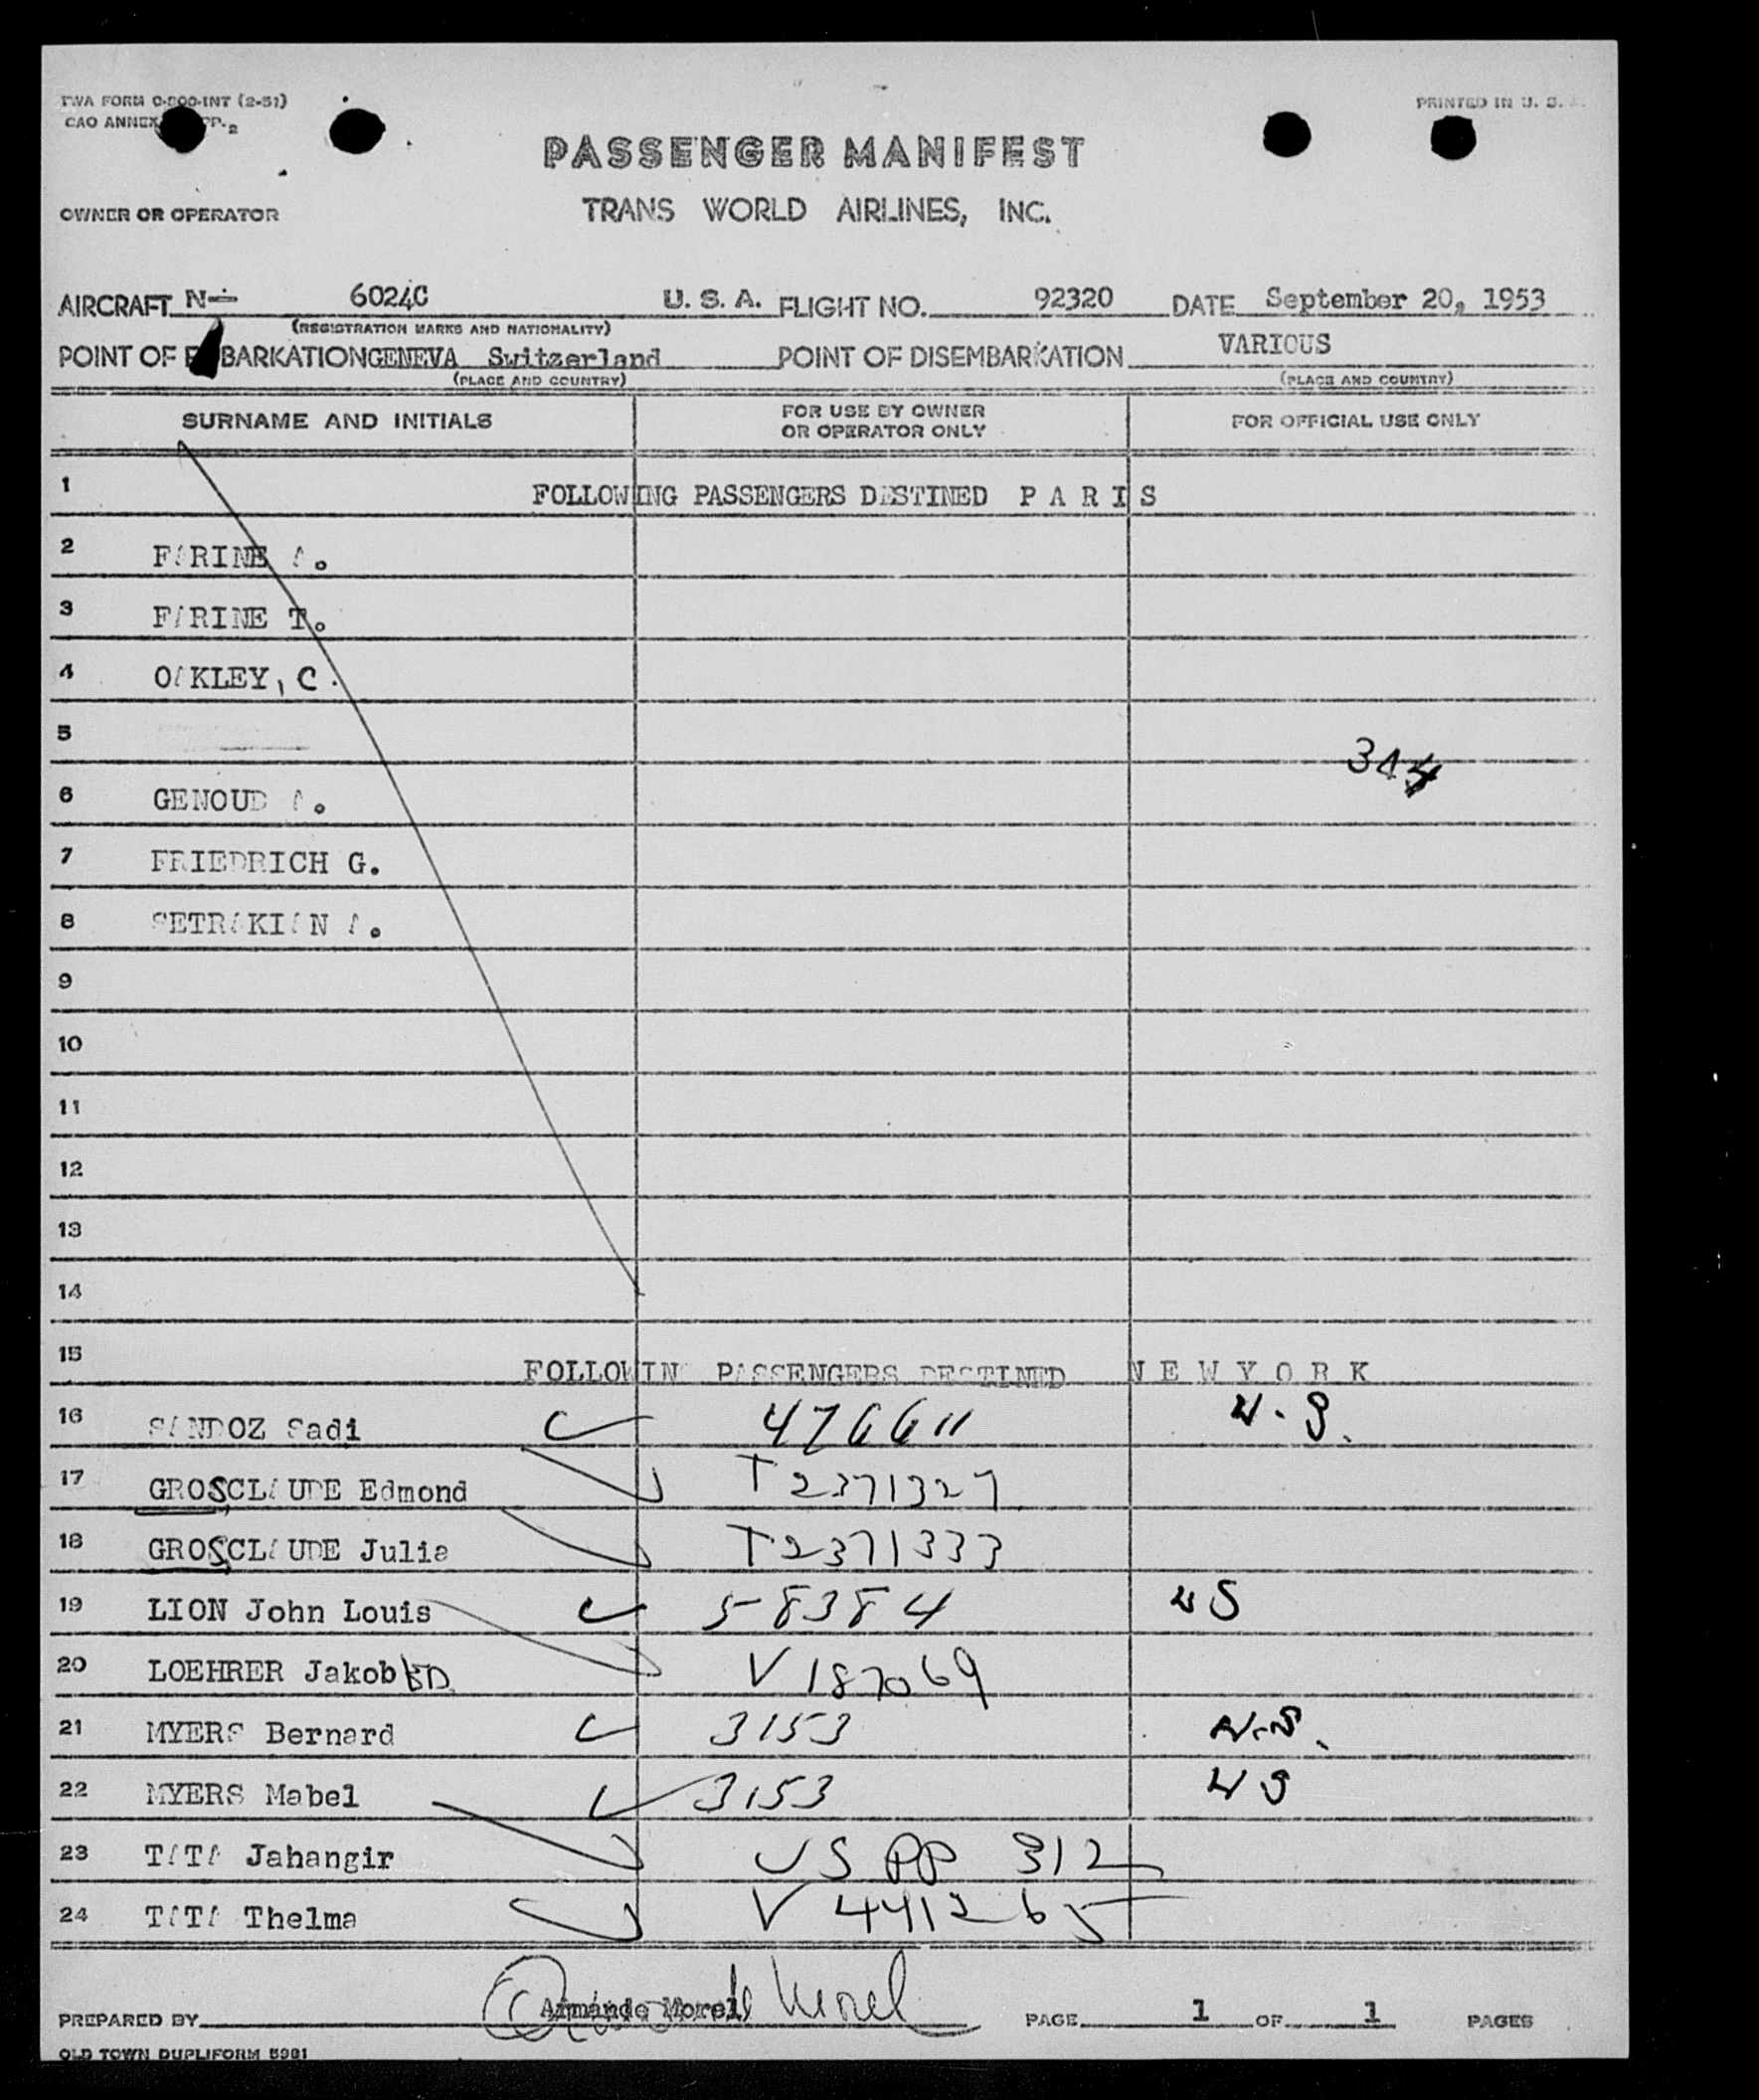 TWA FORM O-800-INT (2-51)
PRINTED IN U. S. A.
CAO ANNEX
PASSENGER MANIFEST
OWNER OR OPERATOR TRANS WORLD AIRLINES, INC.
AIRCRAFT N- 6024C U. S. A. FLIGHT NO. 92320 DATE September 20, 1953
(REGISTRATION MARKS AND NATIONALITY)
POINT OF EMBARKATION GENEVA Switzerland POINT OF DISEMBARKATION VARIOUS
(PLACE AND COUNTRY) (PLACE AND COUNTRY)
SURNAME AND INITIALS FOR USE BY OWNER OR OPERATOR ONLY FOR OFFICIAL USE ONLY
1 FOLLOWING PASSENGERS DESTINED P A R I S
2 FARINE A.
3 FARINE T.
4 OAKLEY, C.
5
344
6 GENOUD A.
7 FRIEDRICH G.
8 SETRAKIAN A.
9
10
11
12
13
14
15 FOLLOWING PASSENGERS DESTINED N E W Y O R K
16 SANDOZ Sadi 476611 U.S.
17 GROSCLAUDE Edmond T2371327
18 GROSCLAUDE Julia T2371333
19 LION John Louis 58384 US
20 LOEHRER Jakob V187069
21 MYERS Bernard 3153 U.S.
22 MYERS Mabel 3153 US
23 TATA Jahangir US PP 312
24 TATA Thelma V 441265
PREPARED BY Armande Morel Armande Morel PAGE 1 OF 1 PAGES
OLD TOWN DUPLIFORM 5981